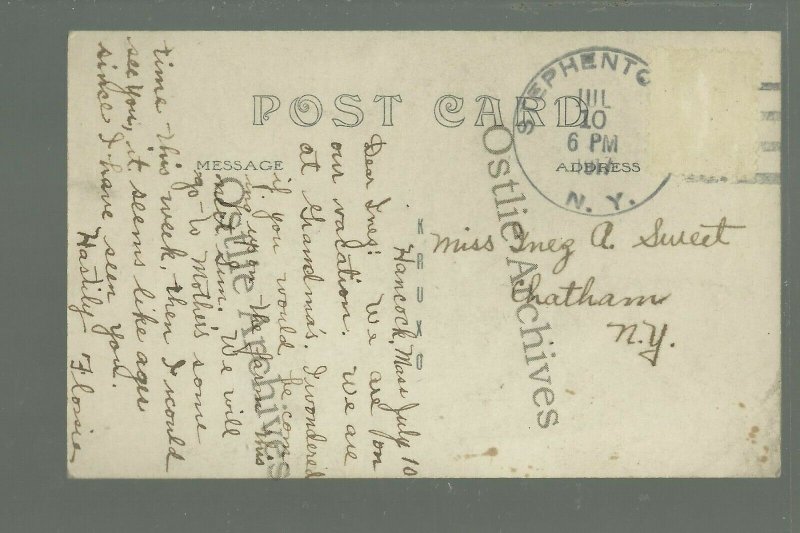 POST CARD
MESSAGE
ADDRESS
STEPHENTO
JUL
10
6 PM
N. Y.
Miss Inez A. Sweet
Chatham
N.Y.
KRUXO
Hancock, Mass July 10
Dear Inez: We are on
our vacation. We are
at Grandma's. I wondered
if you would be com-
ing up on the farm this
next Sun. We will
go to Mother's some
time this week, then I would
see you, it seems like ages
since I have seen you.
Hastily Flossie
Ostlie Archives
Ostlie Archives